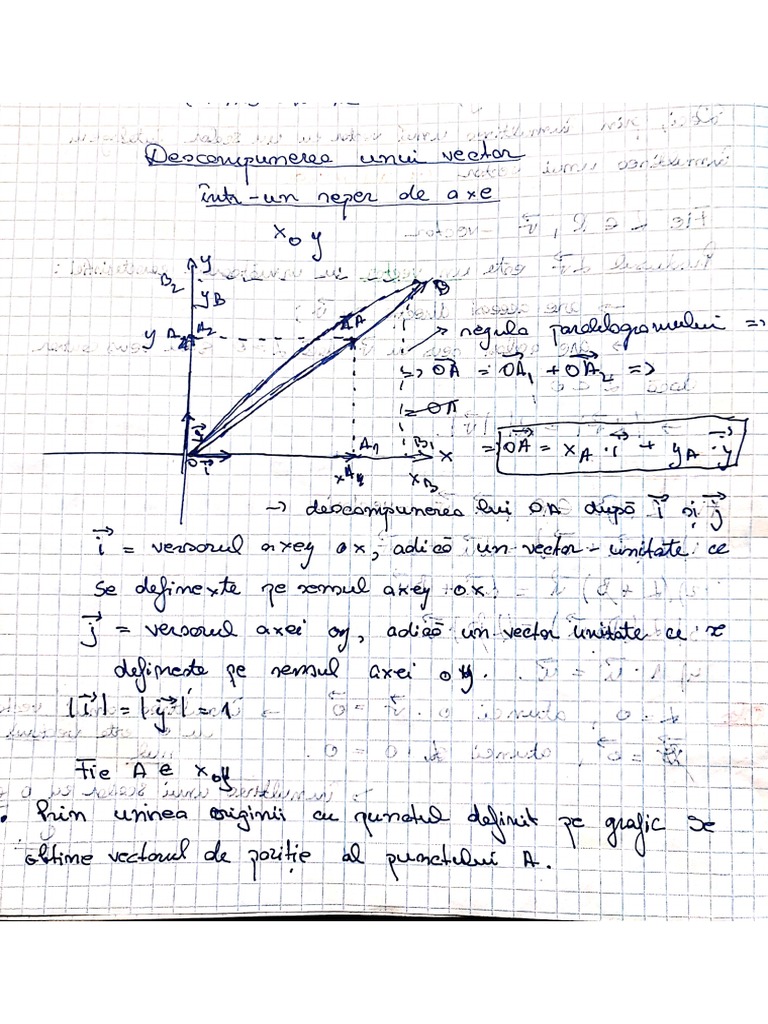 Descompunerea unui vector
într-un reper de axe
xoy
y
B2
yB
B
yA
A2
A
→ regula paralelogramului =>
=> OA = OA1 + OA2 =>
= OA
=> OA = xA · i + yA · y
j
O
i
A1
B1
x
xA
xB
→ descompunerea lui OA după i și j
i = versorul axey ox, adică un vector-unitate ce
se definexte pe sensul axey ox.
j = versorul axei oy, adică un vector unitate ce se
definește pe sensul axei oy.
|i| = |y| = 1
Fie A e xoy
Prin unirea originii cu punctul definit pe grafic se
obtine vectorul de poziție al punctului A.